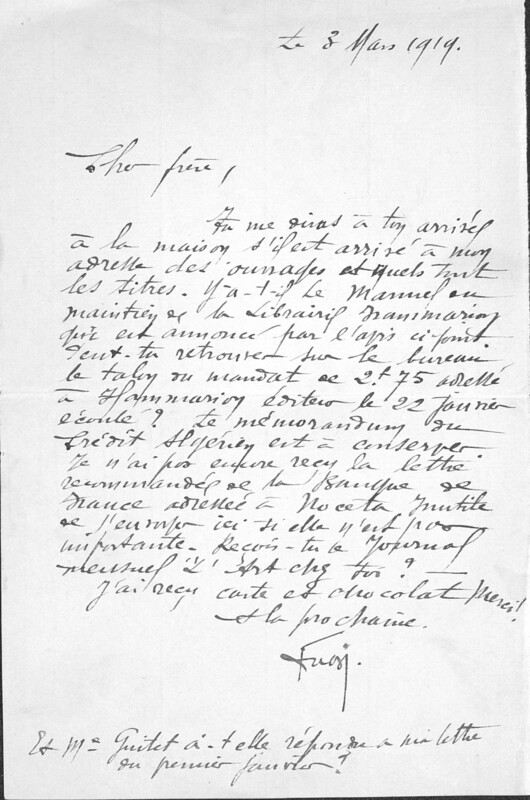 Le 3 Mars 1919.
Cher frère,
Tu me diras à ton arrivée
à la maison s'il est arrivé à mon
adresse des ouvrages et quels sont
les titres. Y-a-t-il le Manuel du
maintien de la Librairie Flammarion
qui est annoncé par l'avis ci-joint
Peut-tu retrouver sur le bureau
le talon du mandat de 2f 75 adressé
à Flammarion éditeur le 22 janvier
écoulé? Le mémorandum du
Crédit Algérien est à conserver
Je n'ai pas encore reçu la lettre
recommandée de la Banque de
France adressée à Inutile
de l'envoyer ici si elle n'est pas
importante. Reçois-tu le Journal
mensuel "L'Art chez toi"? —
J'ai reçu carte et chocolat Merci!
A la prochaine.
Et Me Guitet a-t elle répondu a ma lettre
du premier janvier?